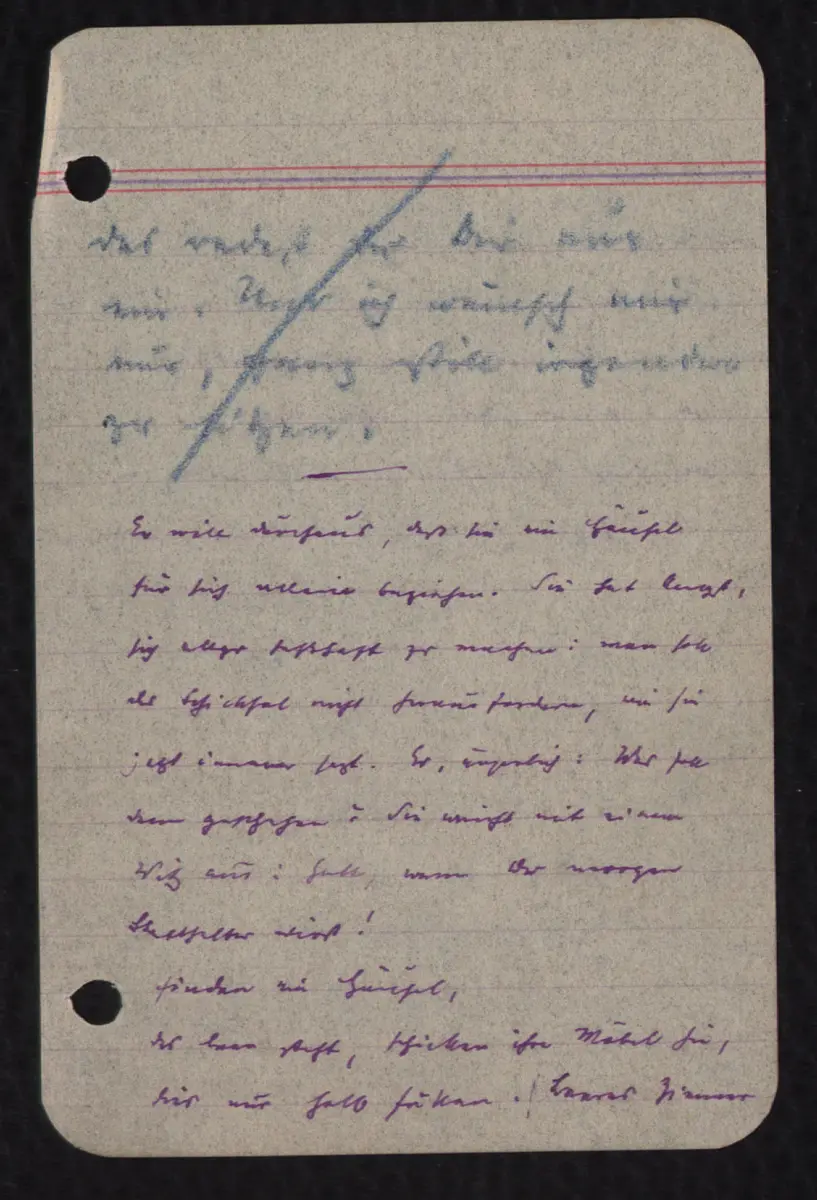 das redest Du Dir nur
ein. Und ich wünsch mir
nur, ganz still irgendwo
zu sitzen.
Er will durchaus, daß sie ein Häusel
für sich allein beziehen. Sie hat Angst,
sich allzu seßhaft zu machen: man soll
das Schicksal nicht herausfordern, wie sie
jetzt immer sagt. Er, ärgerlich: Was soll
denn geschehen? Sie weicht mit einem
Witz aus: halt, wenn Du morgen
Statthalter wirst!
finden ein Häusel,
das leer steht, schicken ihre Möbel hin,
die's nur halb füllen. Leeres Zimmer